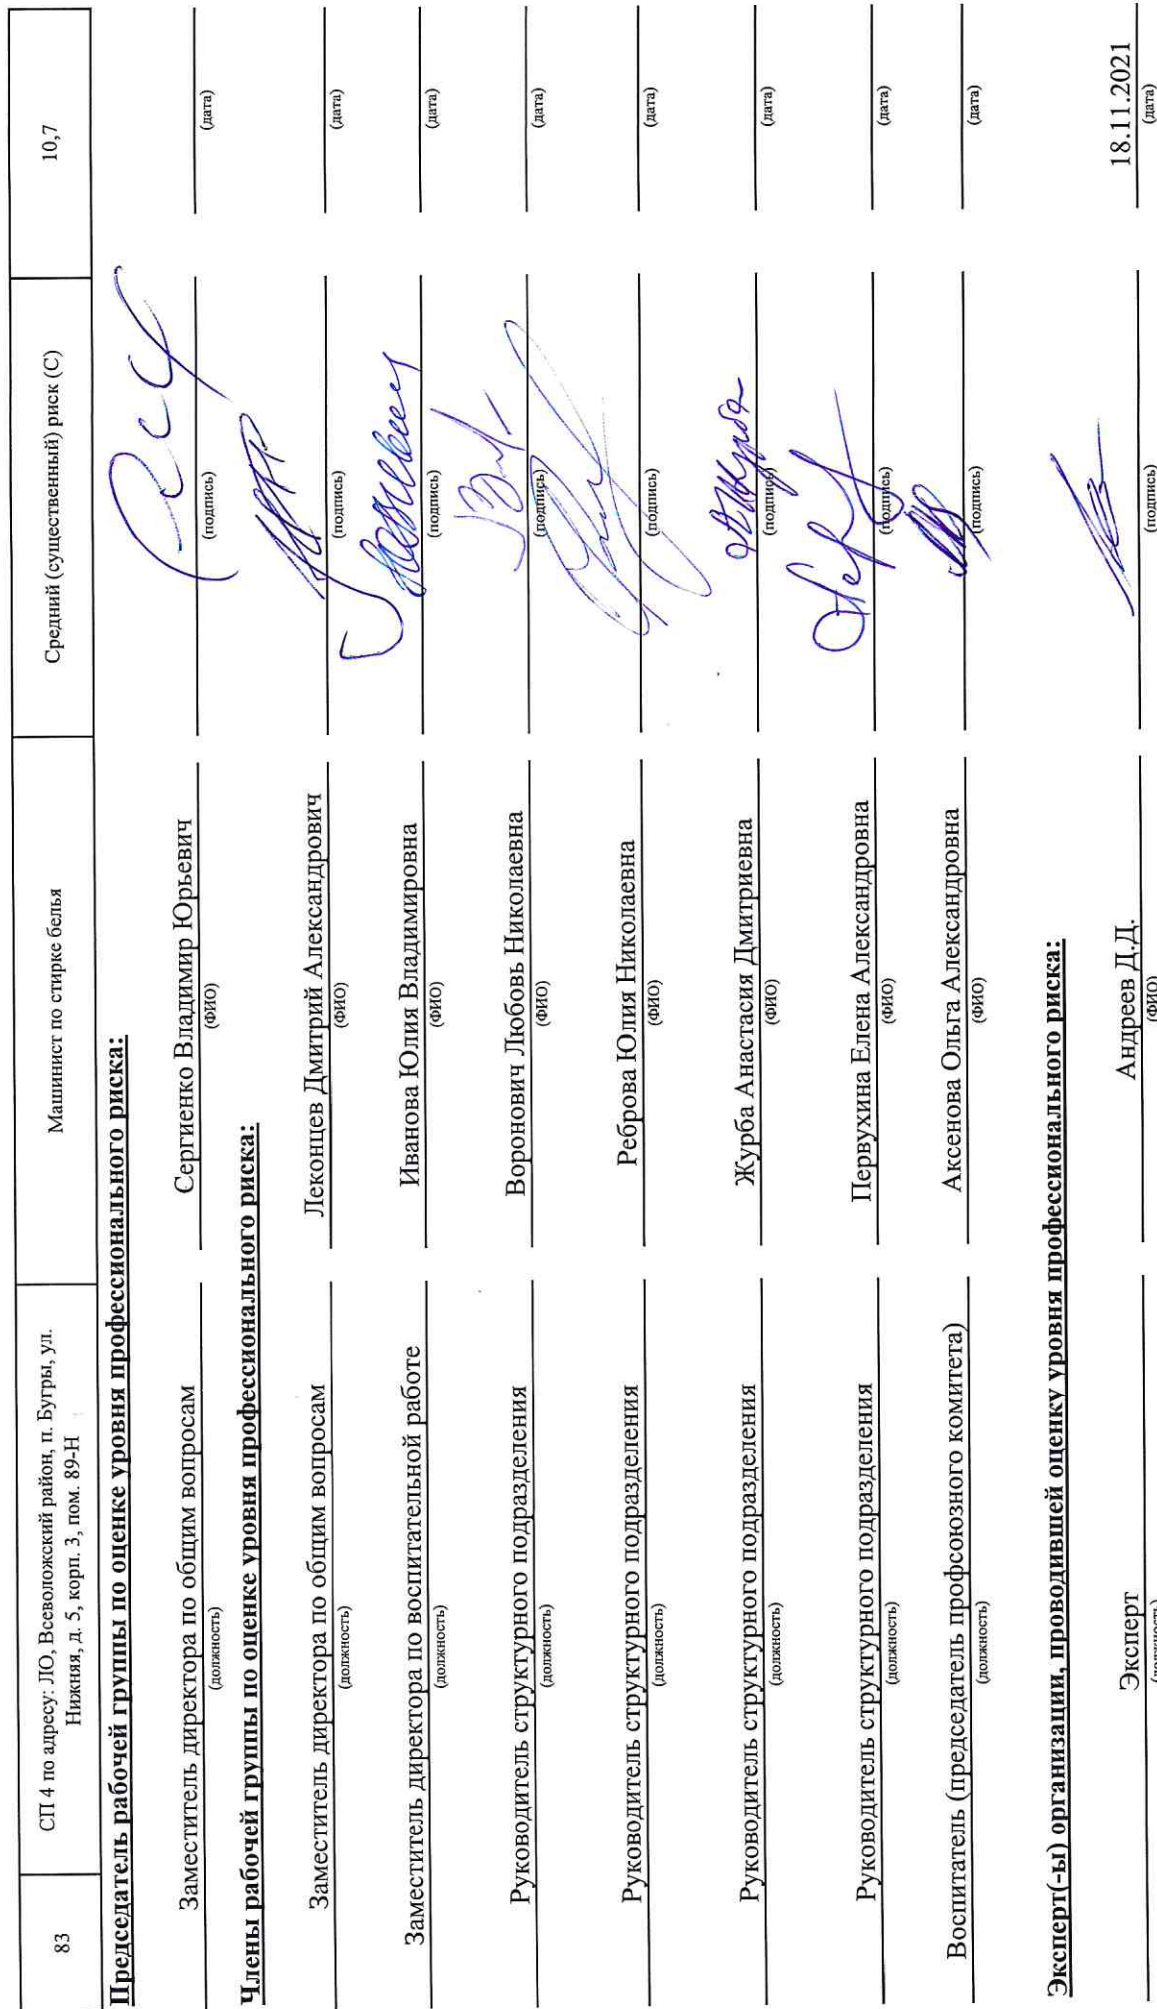 83
СП 4 по адресу: ЛО, Всеволожский район, п. Бугры, ул.
Нижняя, д. 5, корп. 3, пом. 89-Н
Машинист по стирке белья
Средний (существенный) риск (С)
10,7
Председатель рабочей группы по оценке уровня профессионального риска:
Заместитель директора по общим вопросам Сергиенко Владимир Юрьевич
(должность) (ФИО) (подпись) (дата)
Члены рабочей группы по оценке уровня профессионального риска:
Заместитель директора по общим вопросам Леконцев Дмитрий Александрович
(должность) (ФИО) (подпись) (дата)
Заместитель директора по воспитательной работе Иванова Юлия Владимировна
(должность) (ФИО) (подпись) (дата)
Руководитель структурного подразделения Воронович Любовь Николаевна
(должность) (ФИО) (подпись) (дата)
Руководитель структурного подразделения Реброва Юлия Николаевна
(должность) (ФИО) (подпись) (дата)
Руководитель структурного подразделения Журба Анастасия Дмитриевна
(должность) (ФИО) (подпись) (дата)
Руководитель структурного подразделения Первухина Елена Александровна
(должность) (ФИО) (подпись) (дата)
Воспитатель (председатель профсоюзного комитета) Аксенова Ольга Александровна
(должность) (ФИО) (подпись) (дата)
Эксперт(-ы) организации, проводившей оценку уровня профессионального риска:
Эксперт Андреев Д.Д. 18.11.2021
(должность) (ФИО) (подпись) (дата)